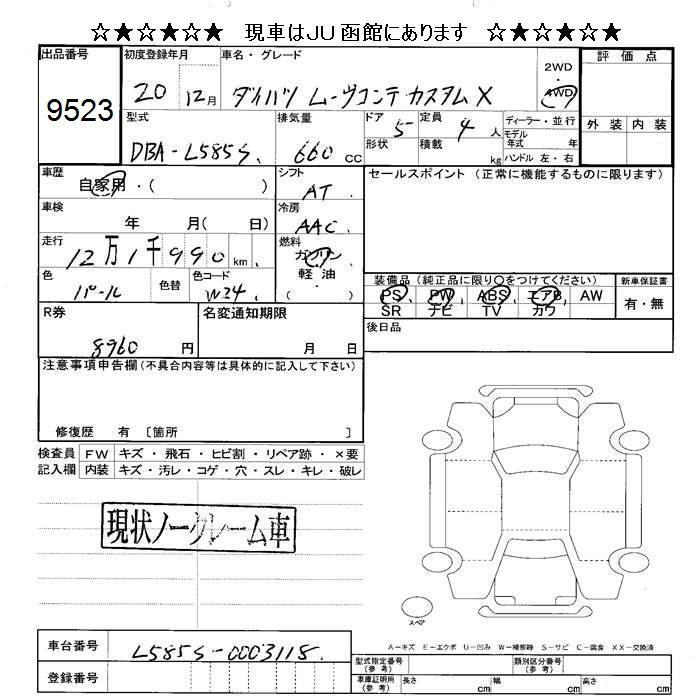 ☆★☆★☆★ 現車はJU函館にあります ☆★☆★☆★
出品番号
9523
初度登録年月
20 12月
車名・グレード
ダイハツ ムーヴコンテ カスタム X
2WD
・
4WD
評価点
外装 内装
型式
DBA-L585S
排気量
660 CC
ドア 5
形状
定員 4 人
積載 kg
ディーラー・並行
モデル
年式 年
ハンドル 左・右
車歴
自家用・( )
シフト
AT
セールスポイント(正常に機能するものに限ります)
車検
年 月( 日)
冷房
AAC
走行
12万1千990 km
燃料
ガソリン
軽油
( )
色
パール
色替
色コード
W24
装備品(純正品に限り○をつけてください)
PS PW ABS エアB AW
SR ナビ TV カワ
新車保証書
有・無
R券
8960 円
名変通知期限
月 日
後日品
注意事項申告欄(不具合内容等は具体的に記入して下さい)
修復歴 有 〔箇所 〕
検査員
記入欄
FW キズ・飛石・ヒビ割・リペア跡・×要
内装 キズ・汚レ・コゲ・穴・スレ・キレ・破レ
現状ノークレーム車
スペア
A-キズ E-エクボ U-凹み W-補修跡 S-サビ C-腐食 XX-交換済
車台番号
L585S-0003118
登録番号
型式指定番号
(参考)
類別区分番号
(参考)
車庫証明用
(参考)
長さ cm
幅 cm
高さ cm